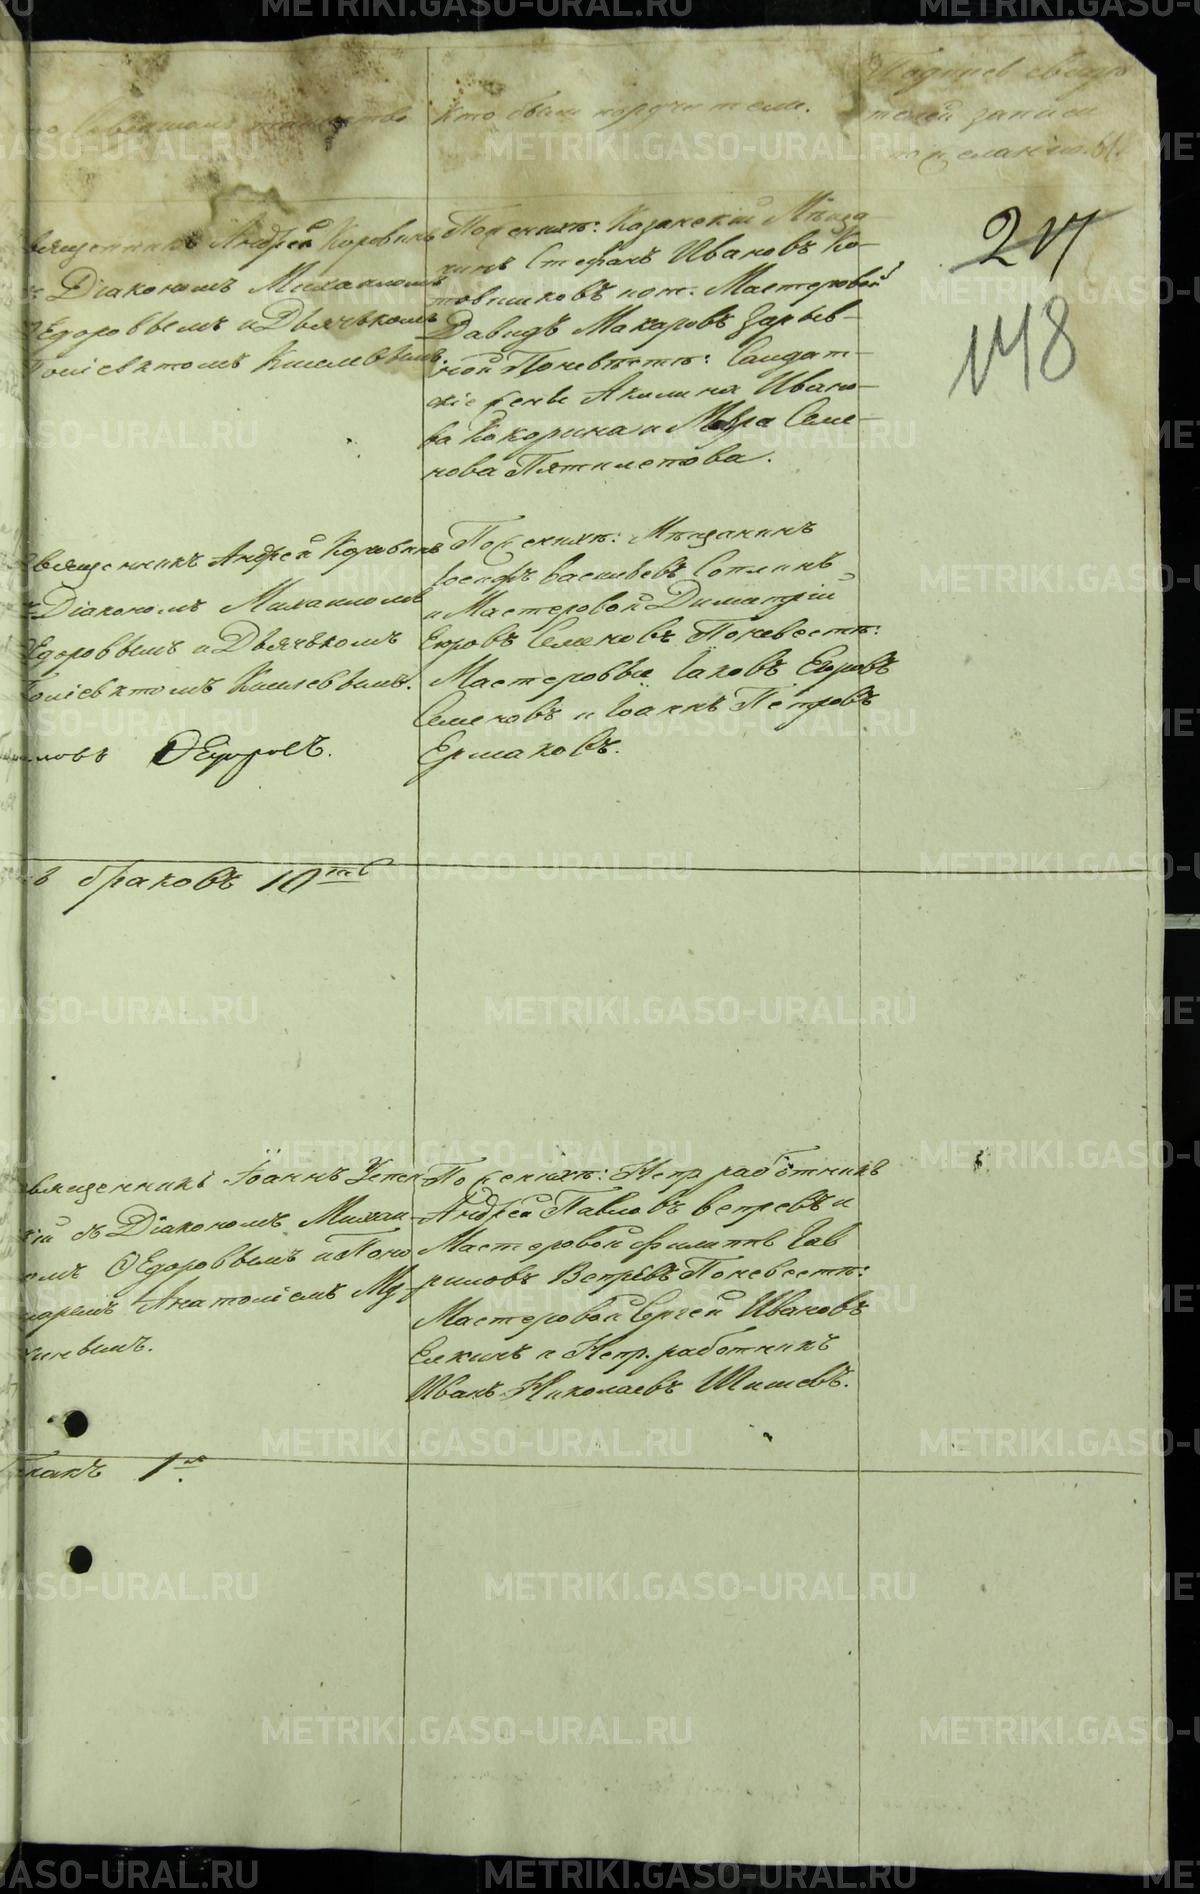 Кто совершалъ таинство
Кто были поручители.
Подпись свидѣ
телей записи
по желанію.
217
148
Священникъ Андрей Коровинъ
съ Діакономъ Михаиломъ
Ѳедоровымъ и Дьячькомъ
Поліевктомъ Киселевымъ.
По женихѣ: Казанскій Мѣща
нинъ Стефанъ Ивановъ Ко-
товщиковъ и от. Мастеровой
Давидъ Макаровъ Зарыв-
ной По невѣстѣ: Солдат-
скіе жены Акилина Ивано-
ва Кокорина и Мавра Семе-
нова Пятилетова.
Священникъ Андрей Коровинъ
съ Діакономъ Михаиломъ
Ѳедоровымъ и Дьячькомъ
Поліевктомъ Киселевымъ.
Ѳедоровъ.
По женихѣ: Мѣщанинъ
Іосифъ Васильевъ Соплинъ
и Мастеровой Димитрій
Егоровъ Семеновъ По невестѣ:
Мастеровыи Іаковъ Егоровъ
Семеновъ и Іоаннъ Петровъ
Ермаковъ.
браковъ 10ть
Священникъ Іоаннъ Успен
скій съ Діакономъ Михаи-
ломъ Ѳедоровымъ и Поно
маремъ Анатоліемъ
По женихѣ: Непр. работникъ
Андрей Павловъ Вепревъ и
Мастеровой Филиппъ Гав
риловъ Вепревъ По невестѣ:
Мастеровой Сергей Ивановъ
Елкинъ и Непр. работникъ
Иванъ Николаевъ Шишевъ.
1
METRIKI.GASO-URAL.RU